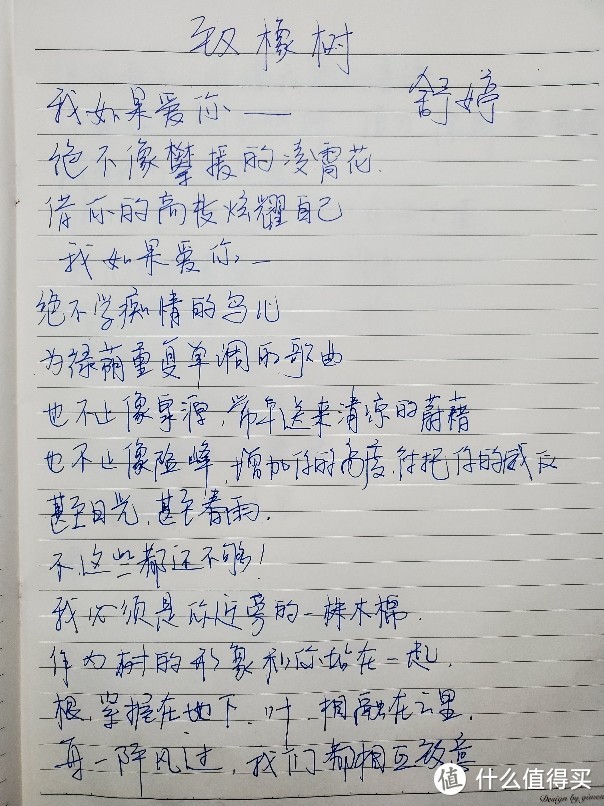 致橡树
舒婷
我如果爱你——
绝不像攀援的凌霄花.
借你的高枝炫耀自己
我如果爱你.—
绝不学痴情的鸟儿
为绿荫重复单调的歌曲
也不止像泉源,常年送来清凉的蔚藉
也不止像险峰,增加你的高度,衬托你的威仪
甚至日光,甚至春雨.
不这些都还不够!
我必须是你近旁的一株木棉.
作为树的形象和你站在一起.
根,掌握在地下,叶,相融在云里.
每一阵风过,我们都相互致意
值 什么值得买
Design by